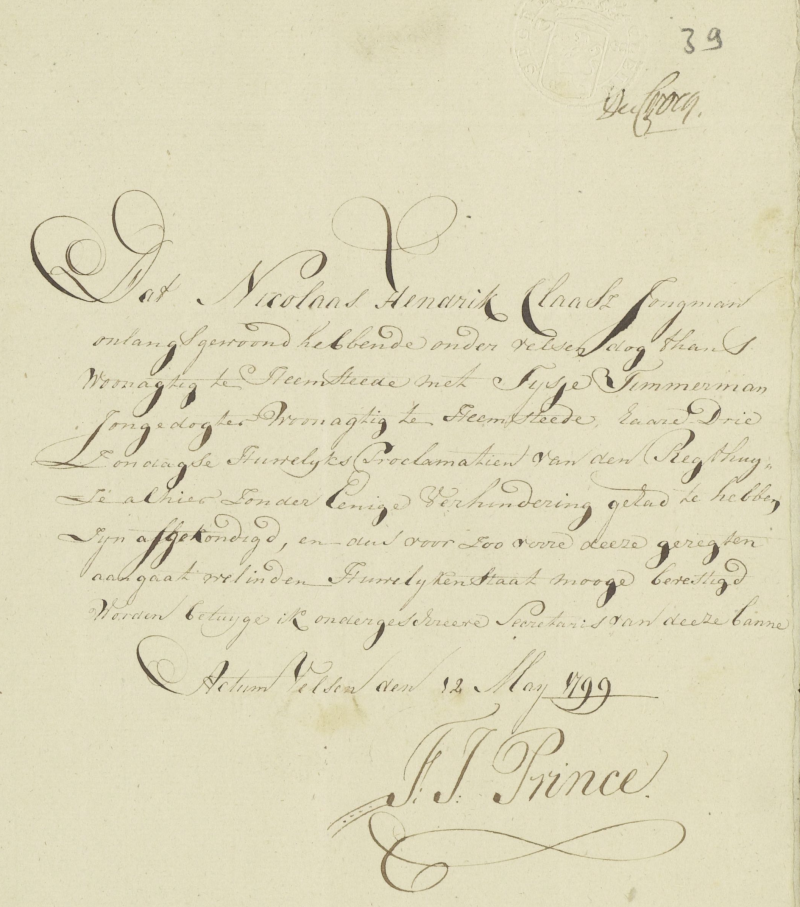 39
Dat Nicolaas Hendrik Claasz Jongman
onlangs gewoond hebbende onder velsen dog thans
Woonagtig te Heemsteede met Tysje Timmerman
Jongedogter Woonagtig te Heemsteede, haare Drie
Zondagse Huwelyks Proclamatien van den Regthuy„
se alhier Zonder Eenige Verhindering gehad te hebben,
Zyn afgekondigd, en dus voor zoo verre deeze geregten
aangaat wel in den Huwelyken Staat mooge bevestigd
Worden betuyge ik ondergeschreeve Secretaris van deeze banne
Actum Velsen den 12 May 1799
F: J: Prince.